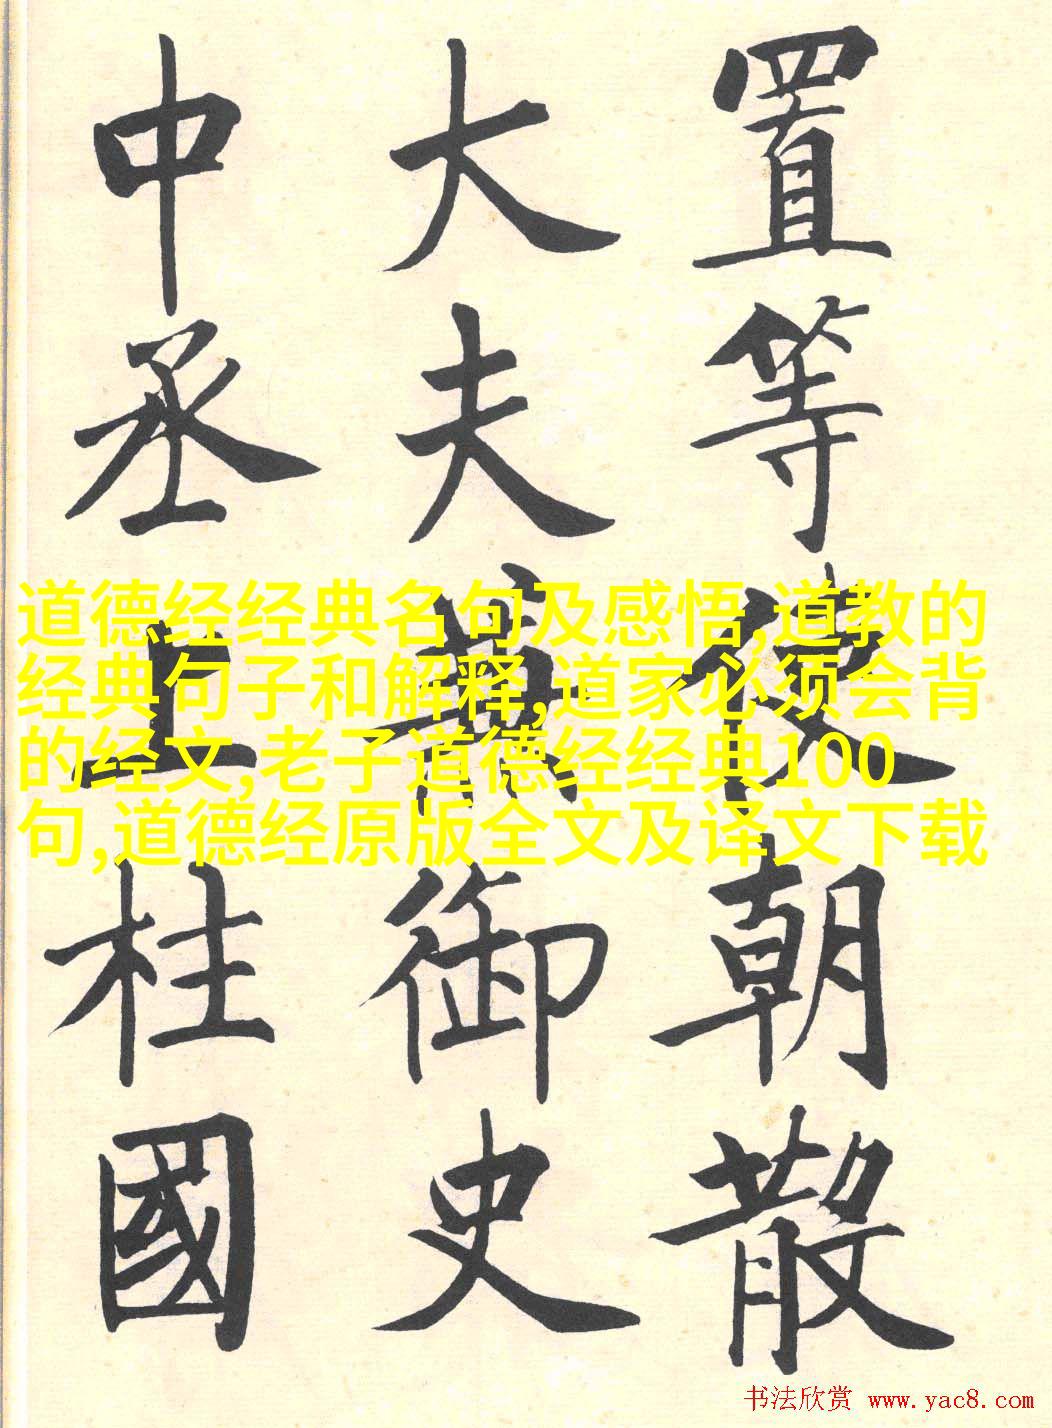 置等使朝散
大夫兼御史
中丞上柱國
道德经经典名句及感悟,道教的
经典句子和解释,道家必须会背
的经文,老子道德经经典100
句,道德经原版全文及译文下载
书法欣赏 www.yac8.com